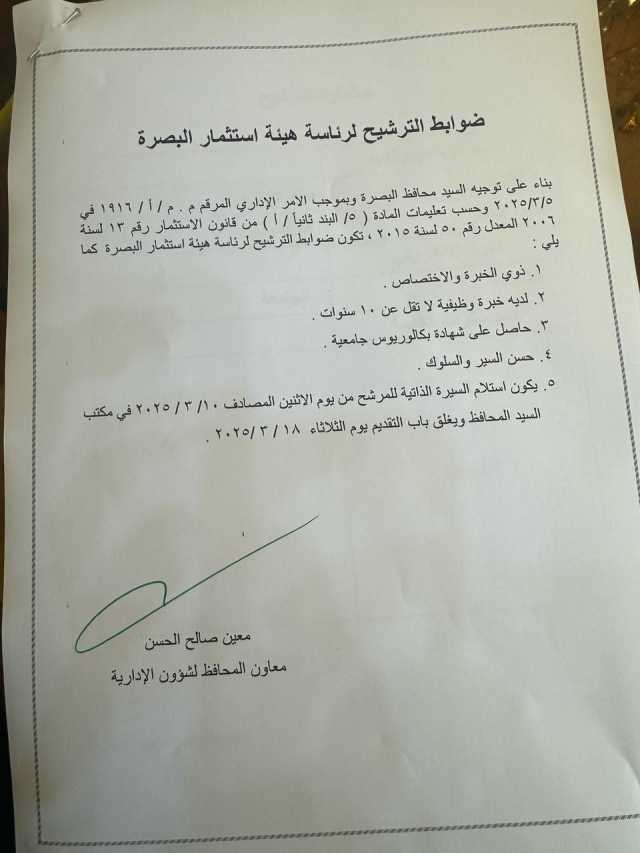 ضوابط الترشيح لرئاسة هيئة استثمار البصرة
بناء على توجيه السيد محافظ البصرة وبموجب الامر الإداري المرقم م . م / أ / ١٩١٦ في
٢٠٢٥/٣/٥ وحسب تعليمات المادة ( ٥/ البند ثانياً / أ ) من قانون الاستثمار رقم ١٣ لسنة
٢٠٠٦ المعدل رقم ٥٠ لسنة ٢٠١٥ ، تكون ضوابط الترشيح لرئاسة هيئة استثمار البصرة كما
يلي :
١. ذوي الخبرة والاختصاص .
٢. لديه خبرة وظيفية لا تقل عن ١٠ سنوات .
٣. حاصل على شهادة بكالوريوس جامعية .
٤. حسن السير والسلوك .
٥. يكون استلام السيرة الذاتية للمرشح من يوم الاثنين المصادف ١٠/ ٣ / ٢٠٢٥ في مكتب
السيد المحافظ ويغلق باب التقديم يوم الثلاثاء ١٨ / ٣ /٢٠٢٥ .
معين صالح الحسن
معاون المحافظ لشؤون الإدارية